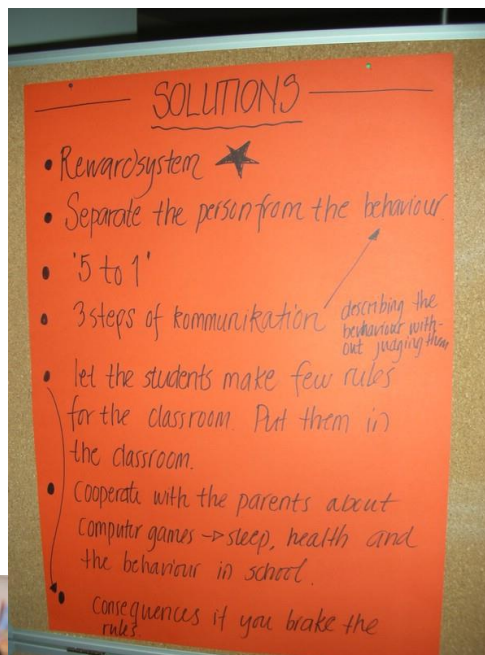 SOLUTIONS
• Rewardsystem ★
• Separate the person from the behaviour
• '5 to 1'
• 3 steps of kommunikation
describing the
behaviour with-
out judging them
• let the students make few rules
for the classroom. Put them in
the classroom.
• Cooperate with the parents about
computer games -> sleep, health and
the behaviour in school.
• Consequences if you brake the
rules.